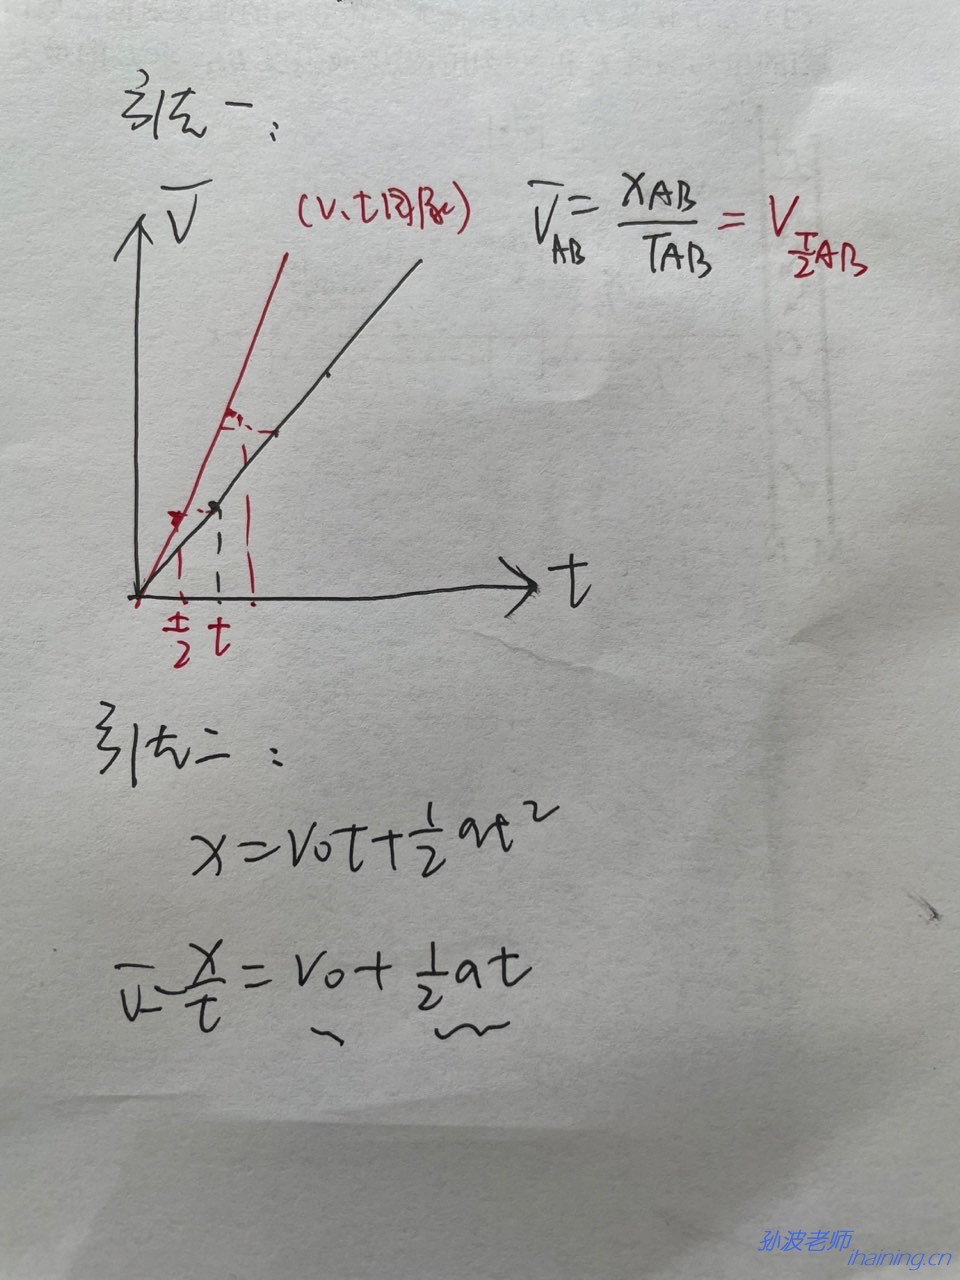 引法一：
V̅
(v、t图像)
V̅_AB = X_AB / T_AB = V_{T/2 AB}
t
t/2 t
引法二：
x = v₀t + 1/2 at²
v̅ = x/t = v₀ + 1/2 at
孙波老师
ihaining.cn